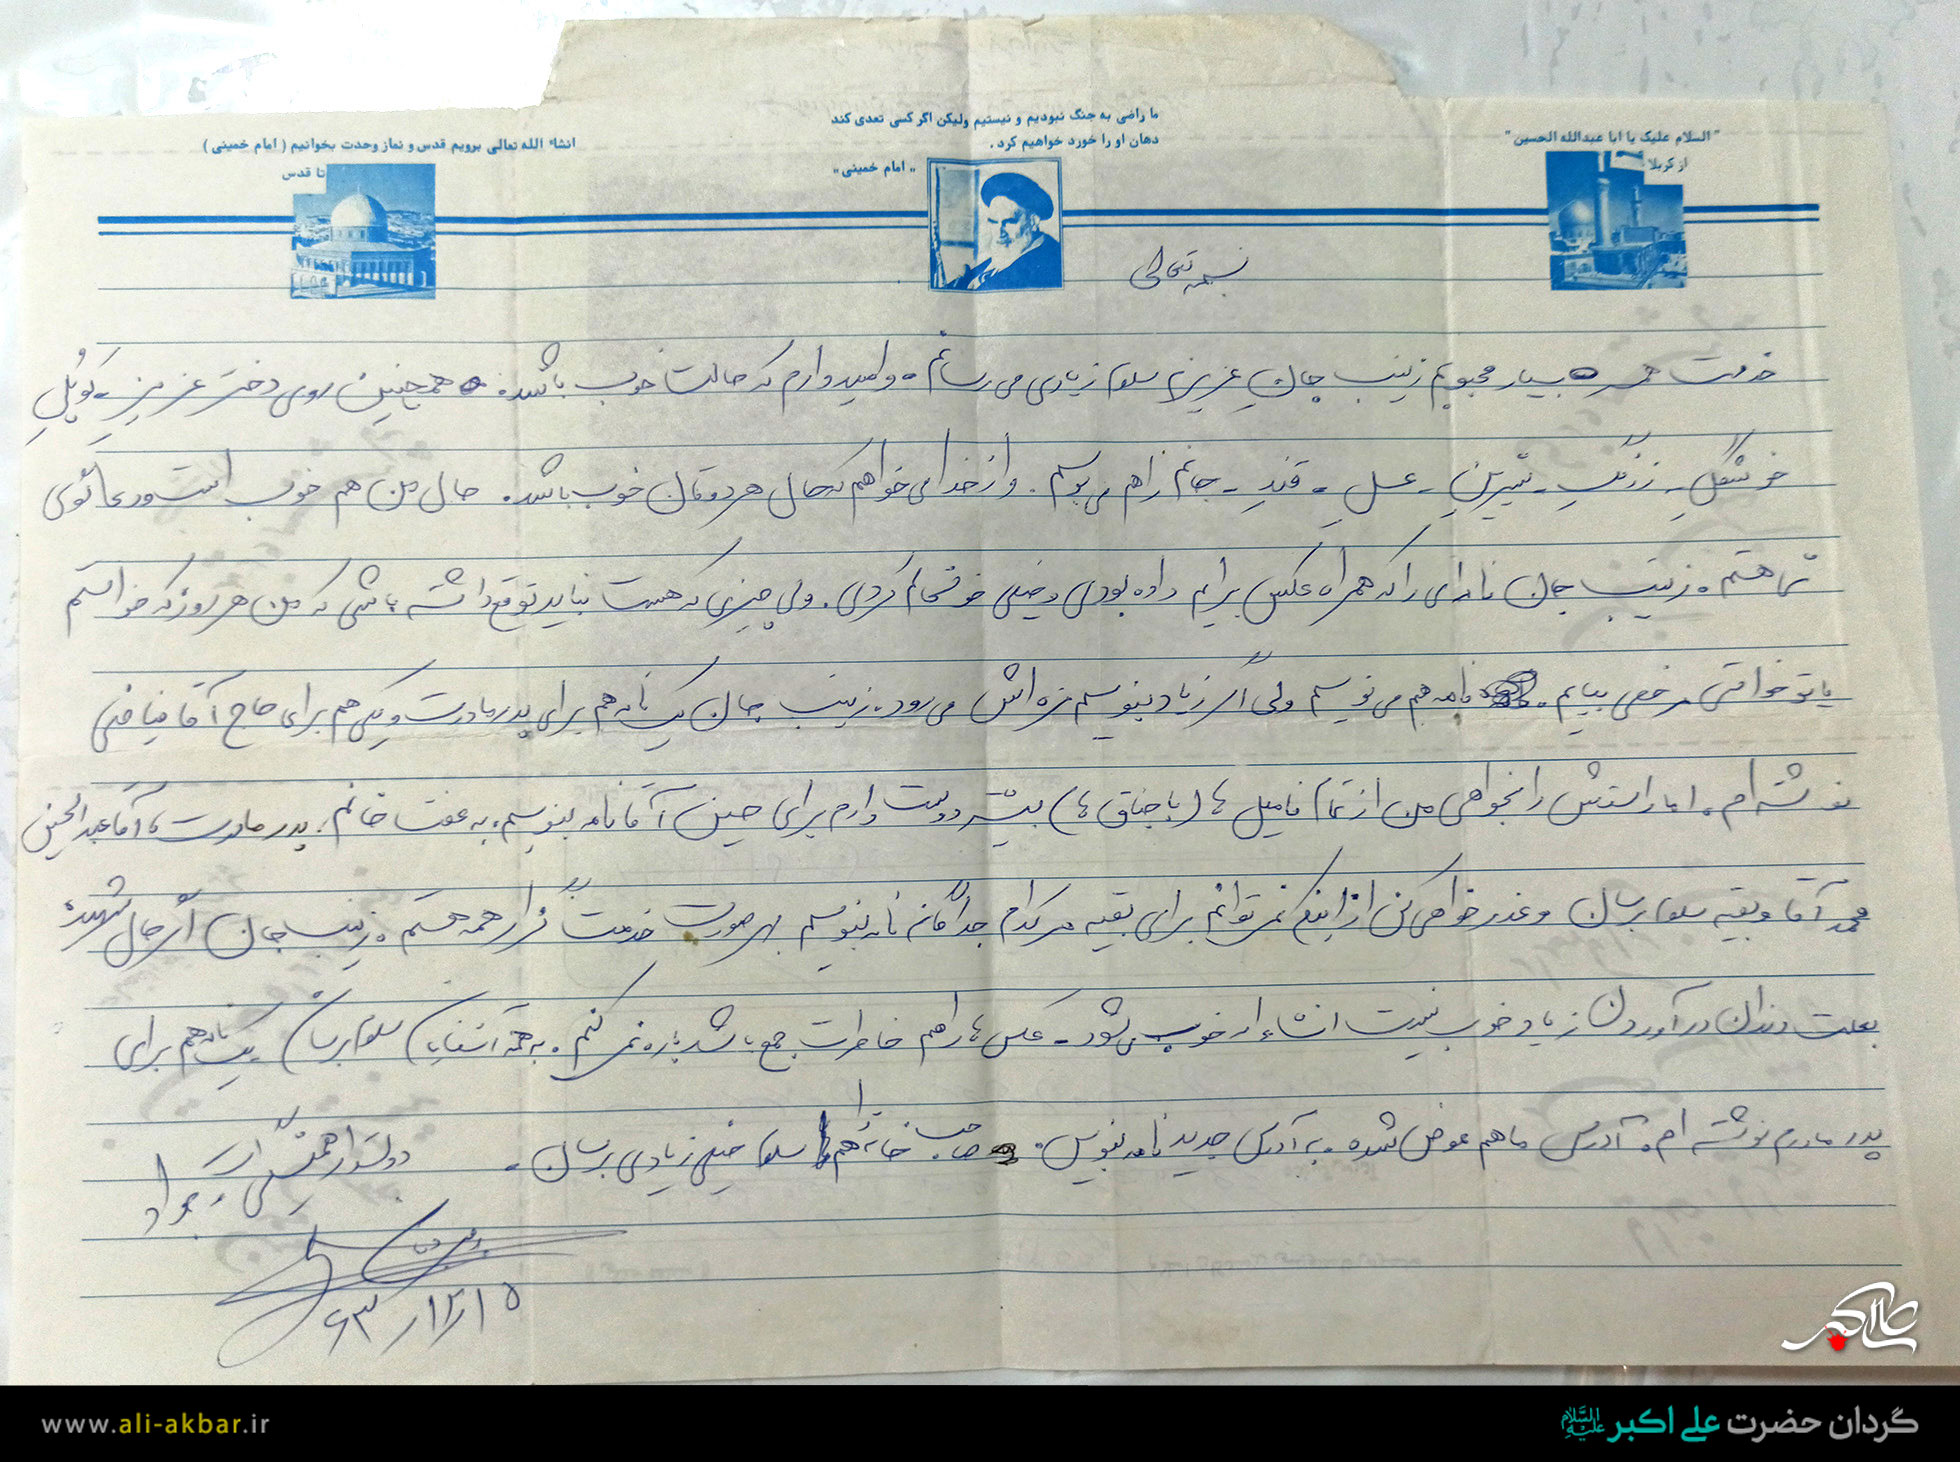 ما راضی به جنگ نبودیم و نیستیم ولیکن اگر کسی تعدی کند
دهان او را خورد خواهیم کرد.
„ امام خمینی „
"السلام علیک یا ابا عبدالله الحسین"
از کربلا
انشاء الله تعالی برویم قدس و نماز وحدت بخوانیم ( امام خمینی )
تا قدس
بسمه تعالی
خدمت همسر بسیار محبوبم زینب جان عزیزم سلام زیادی می رسانم. و امیدوارم که حالت خوب باشد. همچنین روی دختر عزیز-کوپلِ
خوشگلِ - زرنگِ - شیرینِ - عسلِ - قندِ - جانم را هم می بوسم. و از خدا می خواهم که حال هر دوتان خوب باشد. حال من هم خوب است و دعاگوی
شما هستم. زینب جان نامه ای را که همراه عکس برایم داده بودی خیلی خوشحالم کردی. ولی چیزی که هست نباید توقع داشته باشی که من هر روز که خواستم
یا تو خواستی مرخصی بیایم. نامه هم می نویسم ولی اگر زیاد بنویسم مزه اش می رود. زینب جان یک نامه هم برای پدر مادرت و یکی هم برای حاج آقا
نوشته ام. اما راستش را بخواهی من از تمام فامیل ها (باجناق ها) بیشتر دوست دارم برای حسین آقا نامه بنویسم. به عفت خانم، پدر مادرت، آقا عبدالحسین
محمد آقا و بقیه سلام برسان و عذرخواهی کن از اینکه نمی توانم برای بقیه هر کدام جداگانه نامه بنویسم بهر صورت خدمت گزار همه هستم. زینب جان اگر حال شهیده
بعلت دندان در آوردن زیاد خوب نیست انشاءا.. خوب می شود - عکس ها را هم خاطرت جمع باشد پاره نمی کنم. به همه آشنایان سلام برسان یک نامه هم برای
پدر مادرم نوشته ام. آدرس ما هم عوض شده. به آدرس جدید نامه بنویس. صاحب خانه هم را سلام خیلی زیادی برسان -
دوستدار همیشگی ات - جواد
۶۳/۱۲/۱۵
علی اکبر
www.ali-akbar.ir
گردان حضرت علی اکبر علیه السلام